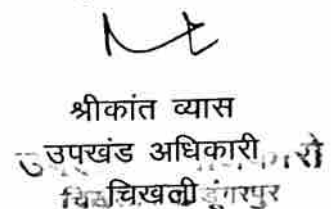 श्रीकांत व्यास
उपखंड अधिकारी
चिखली डूंगरपुर